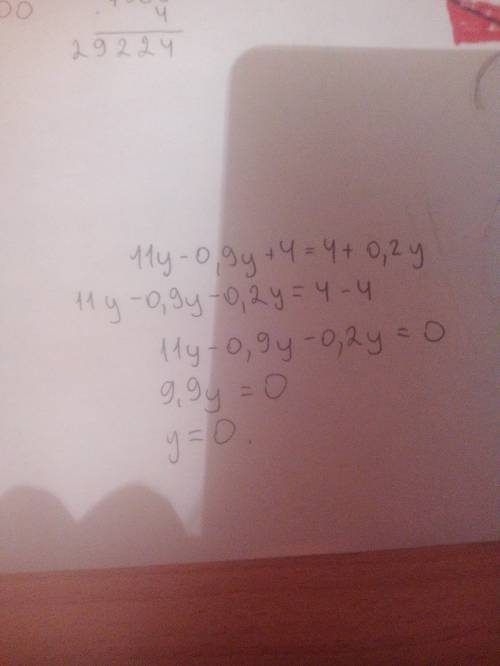 00
4
29224
11y-0,9y+4=4+0,2y
11y-0,9y-0,2y=4-4
11y-0,9y-0,2y=0
9,9y=0
y=0.